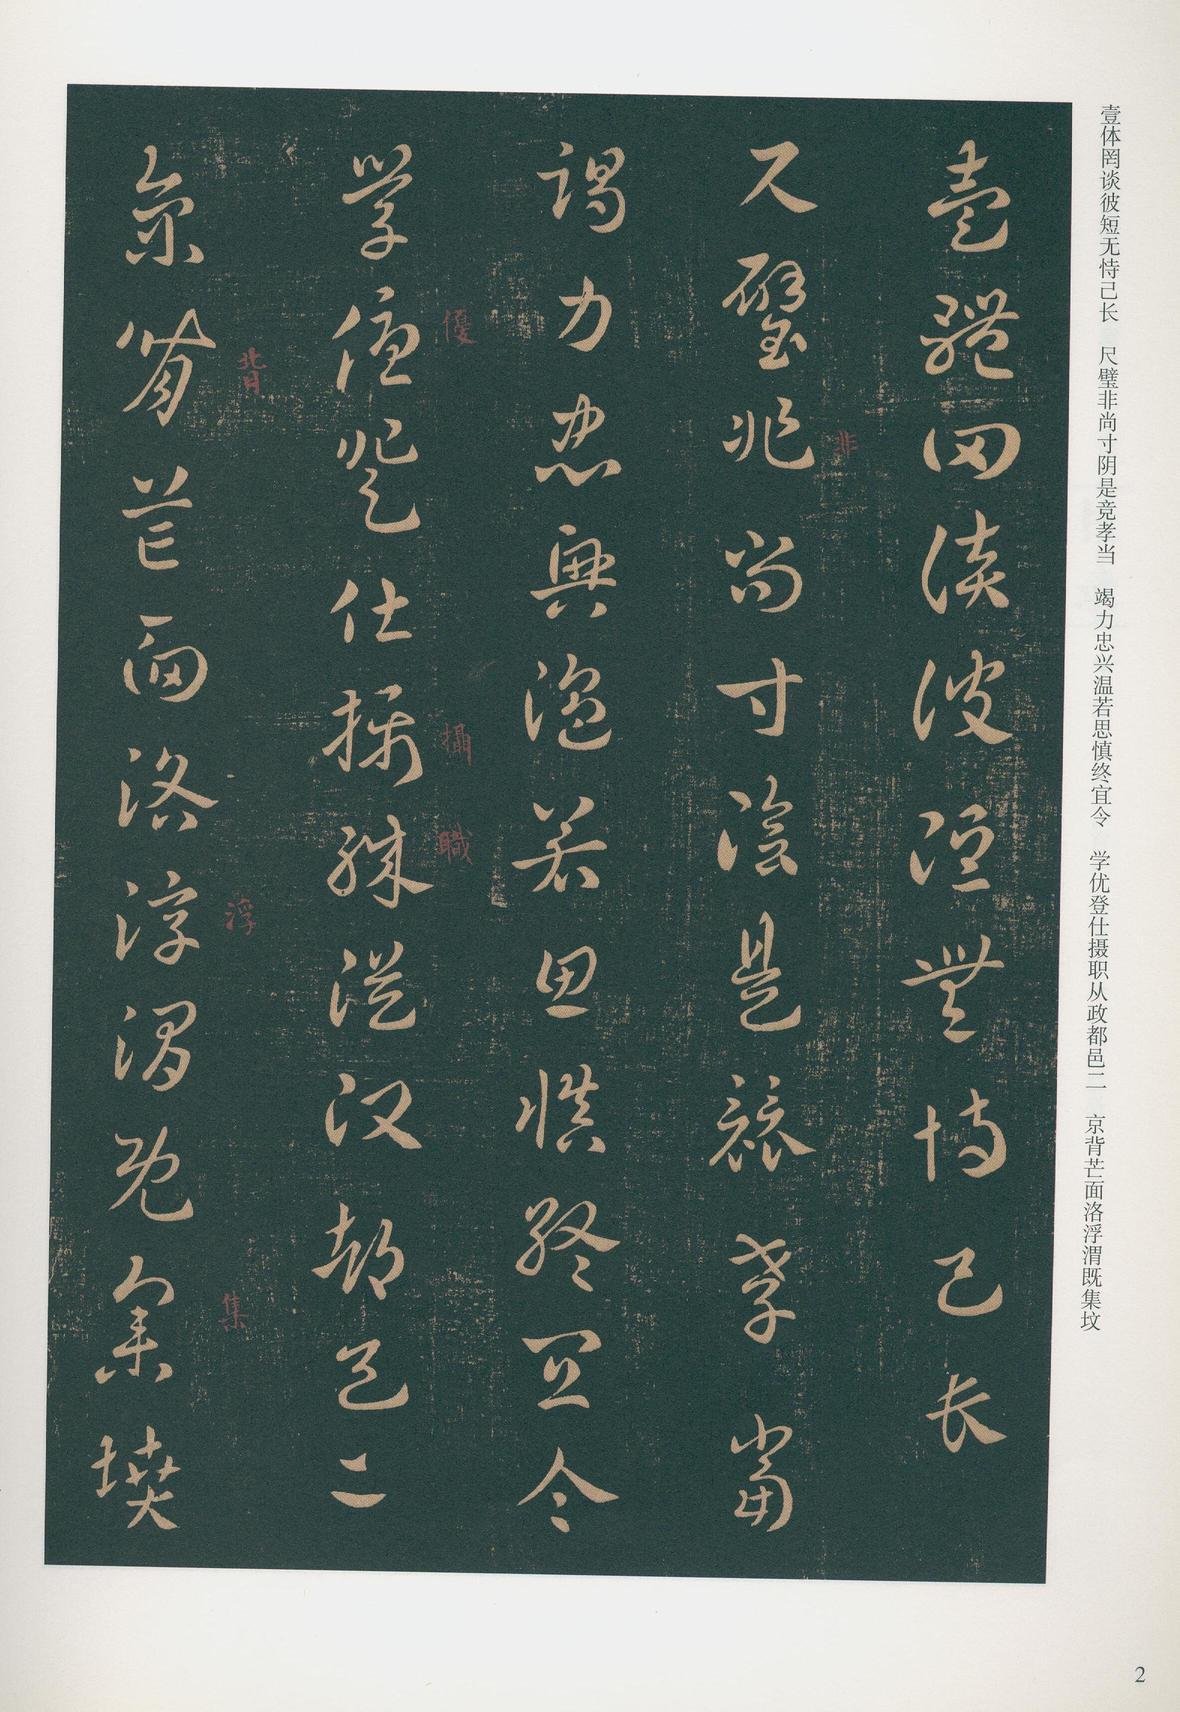 壹体罔谈彼短无恃己长　尺璧非尚寸阴是竞孝当　竭力忠兴温若思慎终宜令　学优登仕摄职从政都邑二　京背芒面洛浮渭既集坟
壹體罔談彼短無恃己長
尺璧非尚寸陰是競孝當
非
竭力忠興温若思慎終宜令
學優登仕攝職從政都邑二
優
攝
職
京背芒面洛浮渭既集墳
背
浮
集
2